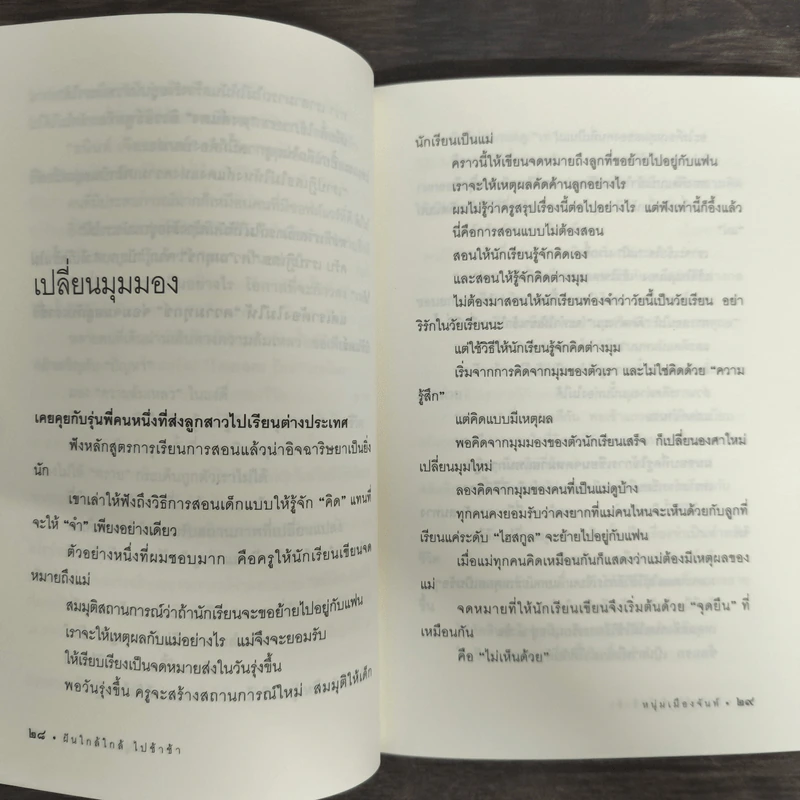 เปลี่ยนมุมมอง
เคยคุยกับรุ่นพี่คนหนึ่งที่ส่งลูกสาวไปเรียนต่างประเทศ
ฟังหลักสูตรการเรียนการสอนแล้วน่าอิจฉาริษยาเป็นยิ่ง
นัก
เขาเล่าให้ฟังถึงวิธีการสอนเด็กแบบให้รู้จัก “คิด” แทนที่
จะให้ “จำ” เพียงอย่างเดียว
ตัวอย่างหนึ่งที่ผมชอบมาก คือครูให้นักเรียนเขียนจด
หมายถึงแม่
สมมุติสถานการณ์ว่าถ้านักเรียนจะขอย้ายไปอยู่กับแฟน
เราจะให้เหตุผลกับแม่อย่างไร แม่จึงจะยอมรับ
ให้เรียบเรียงเป็นจดหมายส่งในวันรุ่งขึ้น
พอวันรุ่งขึ้น ครูจะสร้างสถานการณ์ใหม่ สมมุติให้เด็ก
๒๘ • ฝันใกล้ใกล้ ไปช้าช้า
นักเรียนเป็นแม่
คราวนี้ให้เขียนจดหมายถึงลูกที่ขอย้ายไปอยู่กับแฟน
เราจะให้เหตุผลคัดค้านลูกอย่างไร
ผมไม่รู้ว่าครูสรุปเรื่องนี้ต่อไปอย่างไร แต่ฟังเท่านี้ก็อึ้งแล้ว
นี่คือการสอนแบบไม่ต้องสอน
สอนให้นักเรียนรู้จักคิดเอง
และสอนให้รู้จักคิดต่างมุม
ไม่ต้องมาสอนให้นักเรียนท่องจำว่าวัยนี้เป็นวัยเรียน อย่า
ริรักในวัยเรียนนะ
แต่ใช้วิธีให้นักเรียนรู้จักคิดต่างมุม
เริ่มจากการคิดจากมุมของตัวเรา และไม่ใช่คิดด้วย “ความ
รู้สึก”
แต่คิดแบบมีเหตุผล
พอคิดจากมุมมองของตัวนักเรียนเสร็จ ก็เปลี่ยนองศาใหม่
เปลี่ยนมุมใหม่
ลองคิดจากมุมของคนที่เป็นแม่ดูบ้าง
ทุกคนคงยอมรับว่าคงยากที่แม่คนไหนจะเห็นด้วยกับลูกที่
เรียนแค่ระดับ “ไฮสกูล” จะย้ายไปอยู่กับแฟน
เมื่อแม่ทุกคนคิดเหมือนกันก็แสดงว่าแม่ต้องมีเหตุผลของ
แม่
จดหมายที่ให้นักเรียนเขียนจึงเริ่มต้นด้วย “จุดยืน” ที่
เหมือนกัน
คือ “ไม่เห็นด้วย”
หนุ่มเมืองจันท์ • ๒๙